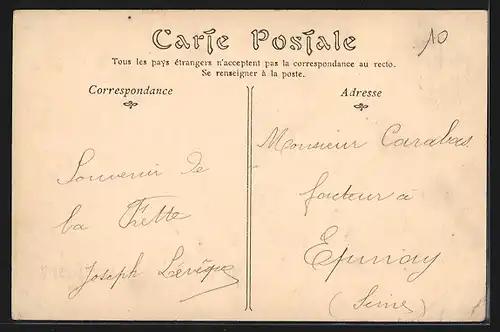 Carte Postale
10
Tous les pays étrangers n'acceptent pas la correspondance au recto.
Se renseigner à la poste.
Correspondance
Adresse
Souvenir de
La Frette
Joseph Lévêque
Monsieur Carabas
facteur à
Epinay
(Seine)